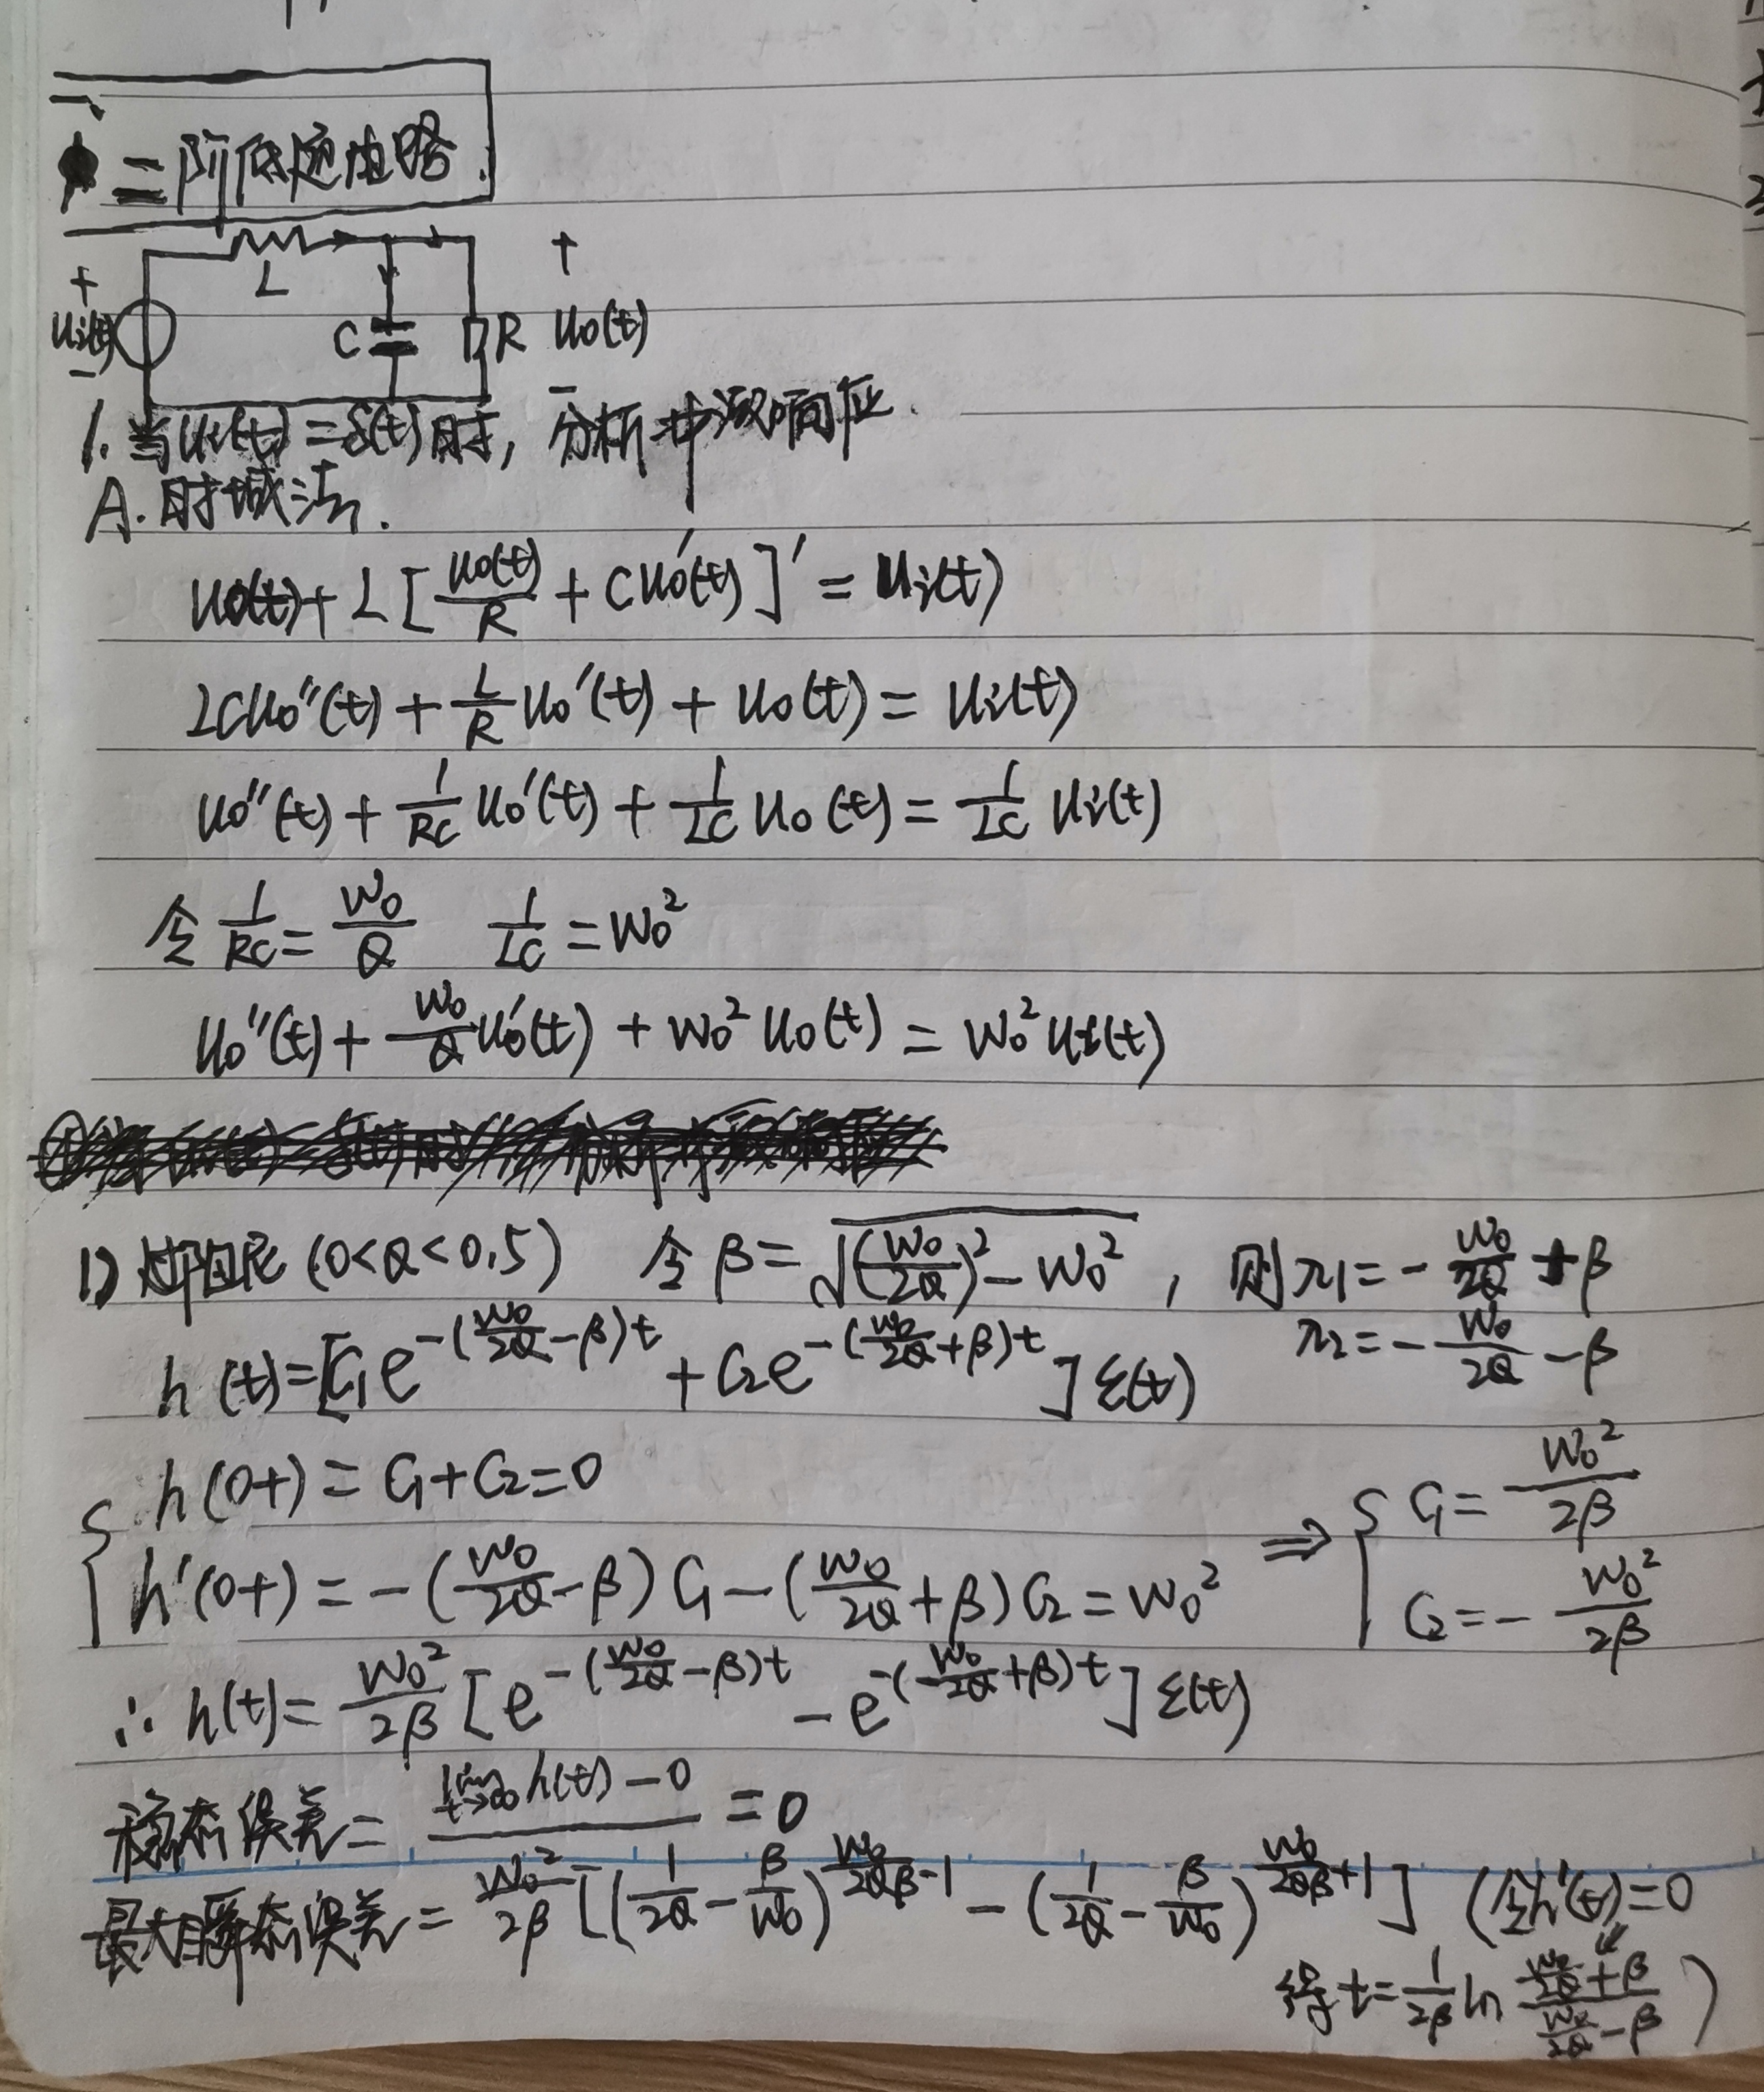 一、
二阶低通电路.
+ L + 
ui(t) C R uo(t)
- -
1. 当ui(t)=δ(t)时, 分析冲激响应.
A. 时域法.
uo(t)+L[uo(t)/R + Cuo'(t)]' = ui(t)
LCuo''(t) + L/R uo'(t) + uo(t) = ui(t)
uo''(t) + 1/RC uo'(t) + 1/LC uo(t) = 1/LC ui(t)
令 1/RC = W0/Q 1/LC = W0²
uo''(t) + W0/Q uo'(t) + W0² uo(t) = W0² ui(t)
1) 过阻尼 (0<Q<0.5) 令 β=√((W0/2Q)²-W0²), 则 λ1=-W0/2Q+β
λ2=-W0/2Q-β
h(t)=[C1e^-(W0/2Q-β)t + C2e^-(W0/2Q+β)t]ε(t)
{ h(0+) = C1+C2=0
h'(0+) = -(W0/2Q-β)C1-(W0/2Q+β)C2=W0² ⇒ { C1=W0²/2β
C2=-W0²/2β
∴ h(t)=W0²/2β[e^-(W0/2Q-β)t - e^-(W0/2Q+β)t]ε(t)
稳态误差= (lim t→∞ h(t)-0)/ =0
最大瞬态误差= W0²/2β[(1/2Q-β/W0)^(W0/2Qβ-1) - (1/2Q-β/W0)^(W0/2Qβ+1)] (令h'(t)=0
得t=1/2β ln (W0/2Q+β)/(W0/2Q-β))